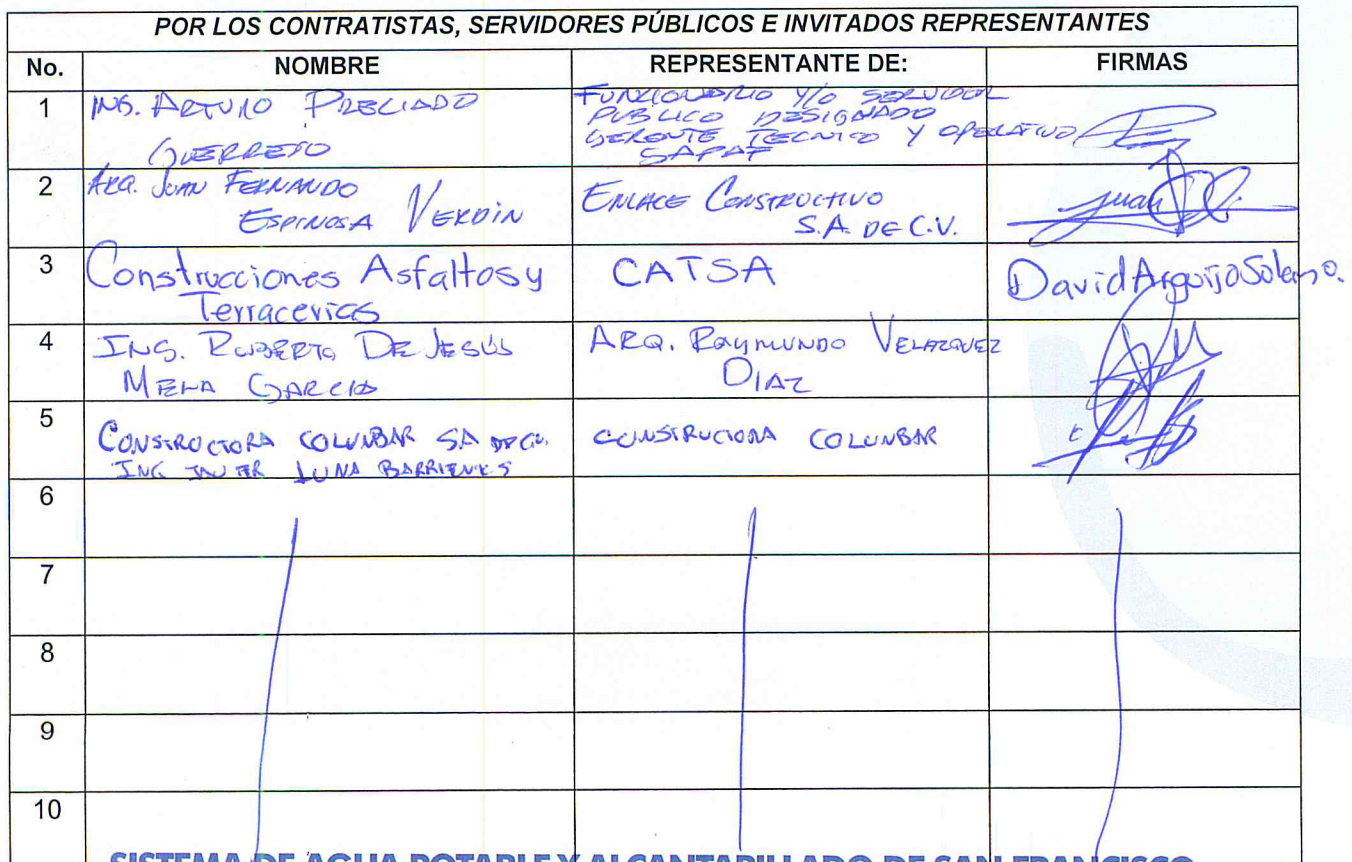 POR LOS CONTRATISTAS, SERVIDORES PÚBLICOS E INVITADOS REPRESENTANTES
No. NOMBRE REPRESENTANTE DE: FIRMAS
1 ING. ARTURO PRECIADO
GUERRERO
FUNCIONARIO Y/O SERVIDOR
PUBLICO DESIGNADO
GERENTE TECNICO Y OPERATIVO
SAPAF
2 ARQ. JUAN FERNANDO
ESPINOSA VERDIN
ENLACE CONSTRUCTIVO
S.A. DE C.V.
Juan
3 Construcciones Asfaltos y
Terracerias
CATSA
David Arguijo Solano.
4 ING. ROBERTO DE JESÚS
MENA GARCIA
ARQ. RAYMUNDO VELAZQUEZ
DIAZ
5 CONSTRUCTORA COLUNBAR SA DE CV.
ING JAVIER LUNA BARRIENTOS
CONSTRUCTORA COLUNBAR
6
7
8
9
10
SISTEMA DE AGUA POTABLE Y ALCANTARILLADO DE SAN FRANCISCO